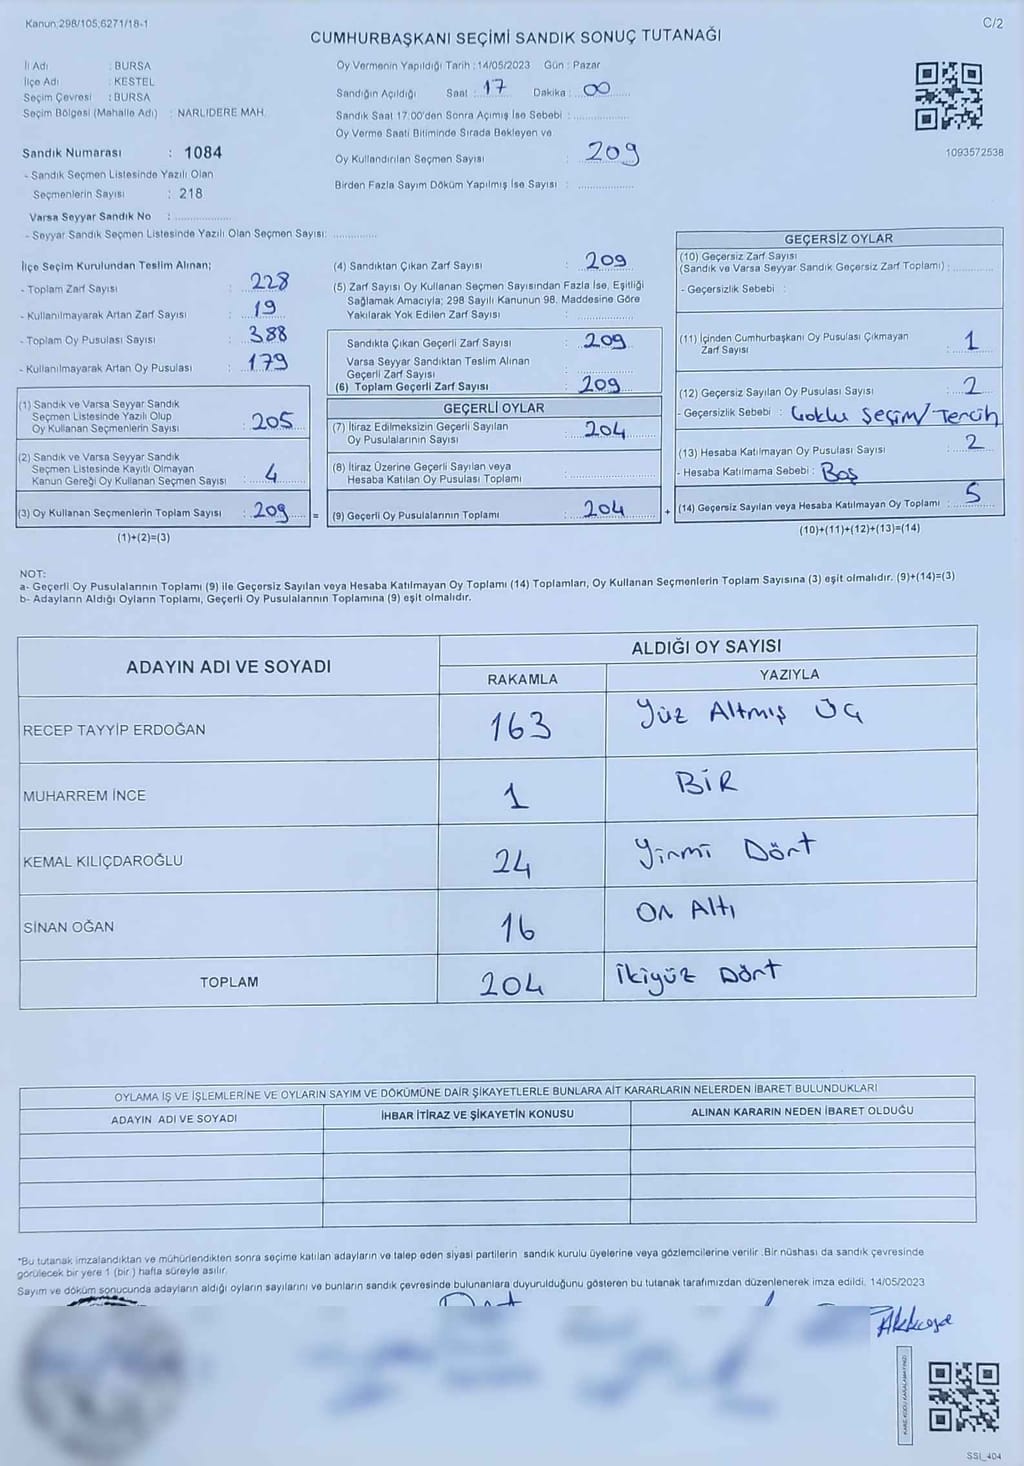 Kanun:298/105,6271/18-1
C/2
CUMHURBAŞKANI SEÇİMİ SANDIK SONUÇ TUTANAĞI
İl Adı : BURSA
İlçe Adı : KESTEL
Seçim Çevresi : BURSA
Seçim Bölgesi (Mahalle Adı) : NARLIDERE MAH.
Sandık Numarası : 1084
- Sandık Seçmen Listesinde Yazılı Olan
Seçmenlerin Sayısı : 218
Varsa Seyyar Sandık No :
- Seyyar Sandık Seçmen Listesinde Yazılı Olan Seçmen Sayısı:
Oy Vermenin Yapıldığı Tarih : 14/05/2023 Gün : Pazar
Sandığın Açıldığı Saat : 17 Dakika : 00
Sandık Saat 17:00'den Sonra Açımış İse Sebebi :
Oy Verme Saati Bitiminde Sırada Bekleyen ve
Oy Kullandırılan Seçmen Sayısı : 209
Birden Fazla Sayım Döküm Yapılmış İse Sayısı :
1093572538
İlçe Seçim Kurulundan Teslim Alınan;
- Toplam Zarf Sayısı : 228
- Kullanılmayarak Artan Zarf Sayısı : 19
- Toplam Oy Pusulası Sayısı : 388
- Kullanılmayarak Artan Oy Pusulası : 179
(1) Sandık ve Varsa Seyyar Sandık
Seçmen Listesinde Yazılı Olup
Oy Kullanan Seçmenlerin Sayısı : 205
(2) Sandık ve Varsa Seyyar Sandık
Seçmen Listesinde Kayıtlı Olmayan
Kanun Gereği Oy Kullanan Seçmen Sayısı : 4
(3) Oy Kullanan Seçmenlerin Toplam Sayısı : 209 =
(1)+(2)=(3)
(4) Sandıktan Çıkan Zarf Sayısı : 209
(5) Zarf Sayısı Oy Kullanan Seçmen Sayısından Fazla İse, Eşitliği
Sağlamak Amacıyla; 298 Sayılı Kanunun 98. Maddesine Göre
Yakılarak Yok Edilen Zarf Sayısı :
Sandıkta Çıkan Geçerli Zarf Sayısı : 209
Varsa Seyyar Sandıktan Teslim Alınan
Geçerli Zarf Sayısı :
(6) Toplam Geçerli Zarf Sayısı : 209
GEÇERLİ OYLAR
(7) İtiraz Edilmeksizin Geçerli Sayılan
Oy Pusulalarının Sayısı : 204
(8) İtiraz Üzerine Geçerli Sayılan veya
Hesaba Katılan Oy Pusulası Toplamı :
(9) Geçerli Oy Pusulalarının Toplamı : 204 +
GEÇERSİZ OYLAR
(10) Geçersiz Zarf Sayısı
(Sandık ve Varsa Seyyar Sandık Geçersiz Zarf Toplamı) :
- Geçersizlik Sebebi :
(11) İçinden Cumhurbaşkanı Oy Pusulası Çıkmayan
Zarf Sayısı : 1
(12) Geçersiz Sayılan Oy Pusulası Sayısı : 2
- Geçersizlik Sebebi : Çoklu Seçim/Tercih
(13) Hesaba Katılmayan Oy Pusulası Sayısı : 2
- Hesaba Katılmama Sebebi : Boş
(14) Geçersiz Sayılan veya Hesaba Katılmayan Oy Toplamı : 5
(10)+(11)+(12)+(13)=(14)
NOT:
a- Geçerli Oy Pusulalarının Toplamı (9) ile Geçersiz Sayılan veya Hesaba Katılmayan Oy Toplamı (14) Toplamları, Oy Kullanan Seçmenlerin Toplam Sayısına (3) eşit olmalıdır. (9)+(14)=(3)
b- Adayların Aldığı Oyların Toplamı, Geçerli Oy Pusulalarının Toplamına (9) eşit olmalıdır.
ADAYIN ADI VE SOYADI
ALDIĞI OY SAYISI
RAKAMLA YAZIYLA
RECEP TAYYİP ERDOĞAN 163 Yüz Altmış Üç
MUHARREM İNCE 1 BİR
KEMAL KILIÇDAROĞLU 24 Yirmi Dört
SİNAN OĞAN 16 On Altı
TOPLAM 204 İkiyüz Dört
OYLAMA İŞ VE İŞLEMLERİNE VE OYLARIN SAYIM VE DÖKÜMÜNE DAİR ŞİKAYETLERLE BUNLARA AİT KARARLARIN NELERDEN İBARET BULUNDUKLARI
ADAYIN ADI VE SOYADI İHBAR İTİRAZ VE ŞİKAYETİN KONUSU ALINAN KARARIN NEDEN İBARET OLDUĞU
*Bu tutanak imzalandıktan ve mühürlendikten sonra seçime katılan adayların ve talep eden siyasi partilerin sandık kurulu üyelerine veya gözlemcilerine verilir .Bir nüshası da sandık çevresinde
görülecek bir yere 1 (bir ) hafta süreyle asılır.
Sayım ve döküm sonucunda adayların aldığı oyların sayılarını ve bunların sandık çevresinde bulunanlara duyurulduğunu gösteren bu tutanak tarafımızdan düzenlenerek imza edildi. 14/05/2023
KARE KODU KARALAMAYINIZ!
SSİ_404